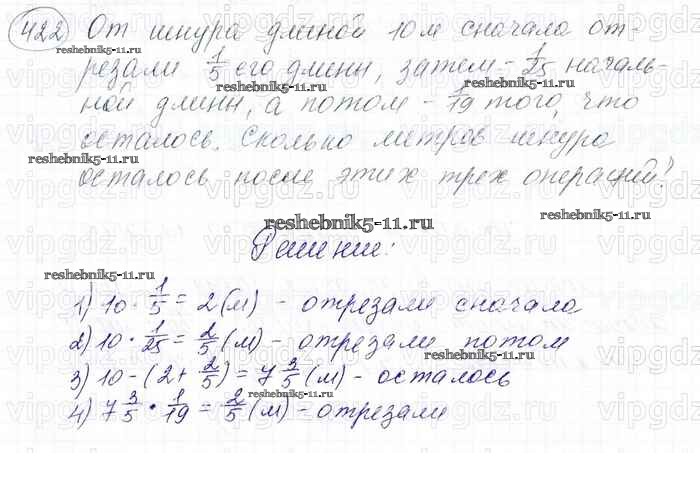 422) От шнура длиной 10 м сначала от-
резали 1/5 его длины, затем - 1/25 началь-
ной длины, а потом - 1/19 того, что
осталось. Сколько метров шнура
осталось после этих трех операций?
Решение:
1) 10 · 1/5 = 2 (м) - отрезали сначала
2) 10 · 1/25 = 2/5 (м) - отрезали потом
3) 10 - (2 + 2/5) = 7 3/5 (м) - осталось
4) 7 3/5 · 1/19 = 2/5 (м) - отрезали
reshebnik5-11.ru
reshebnik5-11.ru
reshebnik5-11.ru
reshebnik5-11.ru
reshebnik5-11.ru
reshebnik5-11.ru
reshebnik5-11.ru
reshebnik5-11.ru
vipgdz.ru